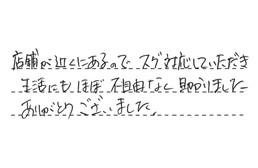 店舗が近くにあるので スグ対応していただき
生活にもほぼ不自由なく助かりました
ありがとうございました。